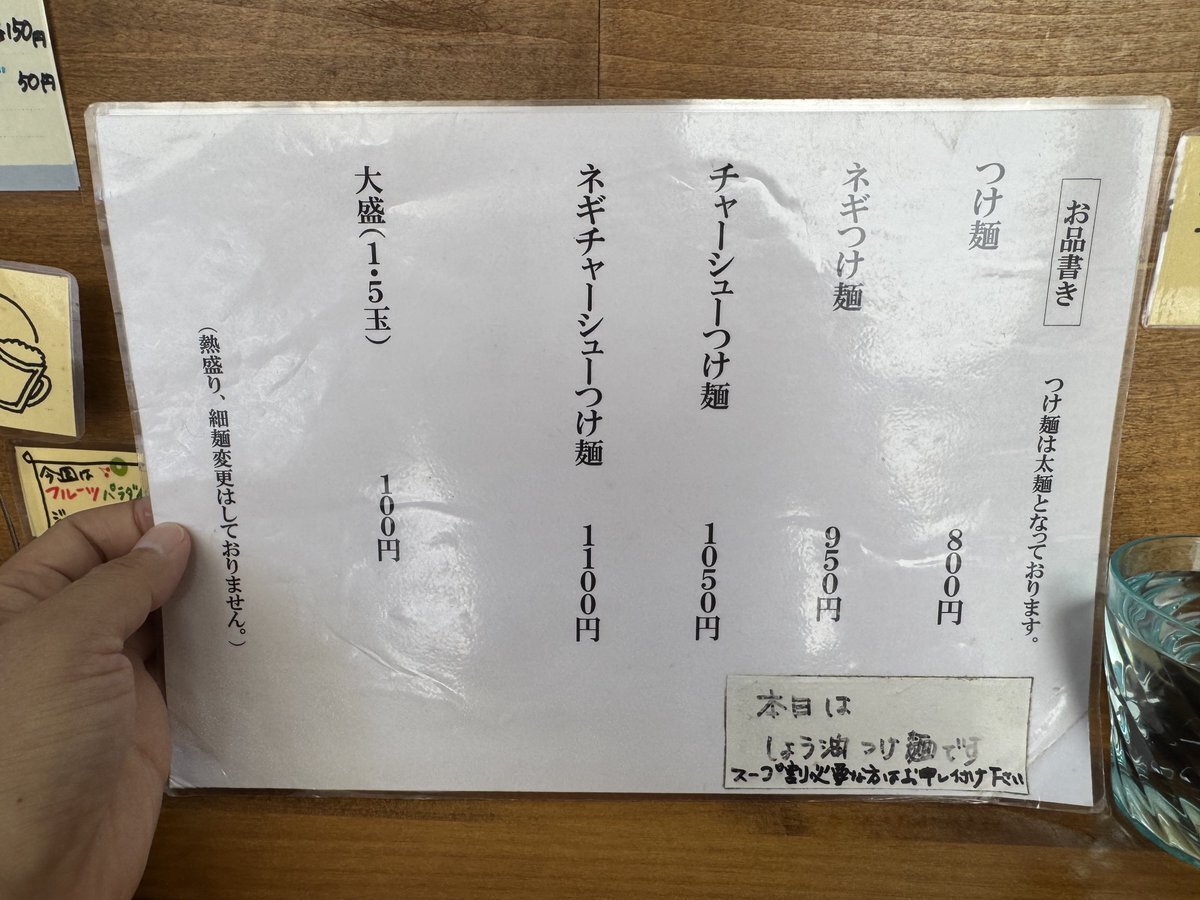 お品書き
つけ麺は太麺となっております。
つけ麺 800円
ネギつけ麺 950円
チャーシューつけ麺 1050円
ネギチャーシューつけ麺 1100円
大盛(1・5玉) 100円
(熱盛り、細麺変更はしておりません。)
本日は
しょう油つけ麺です
スープ割り必要な方はお申し付け下さい
150円
50円
今週は
フルーツパラダイ